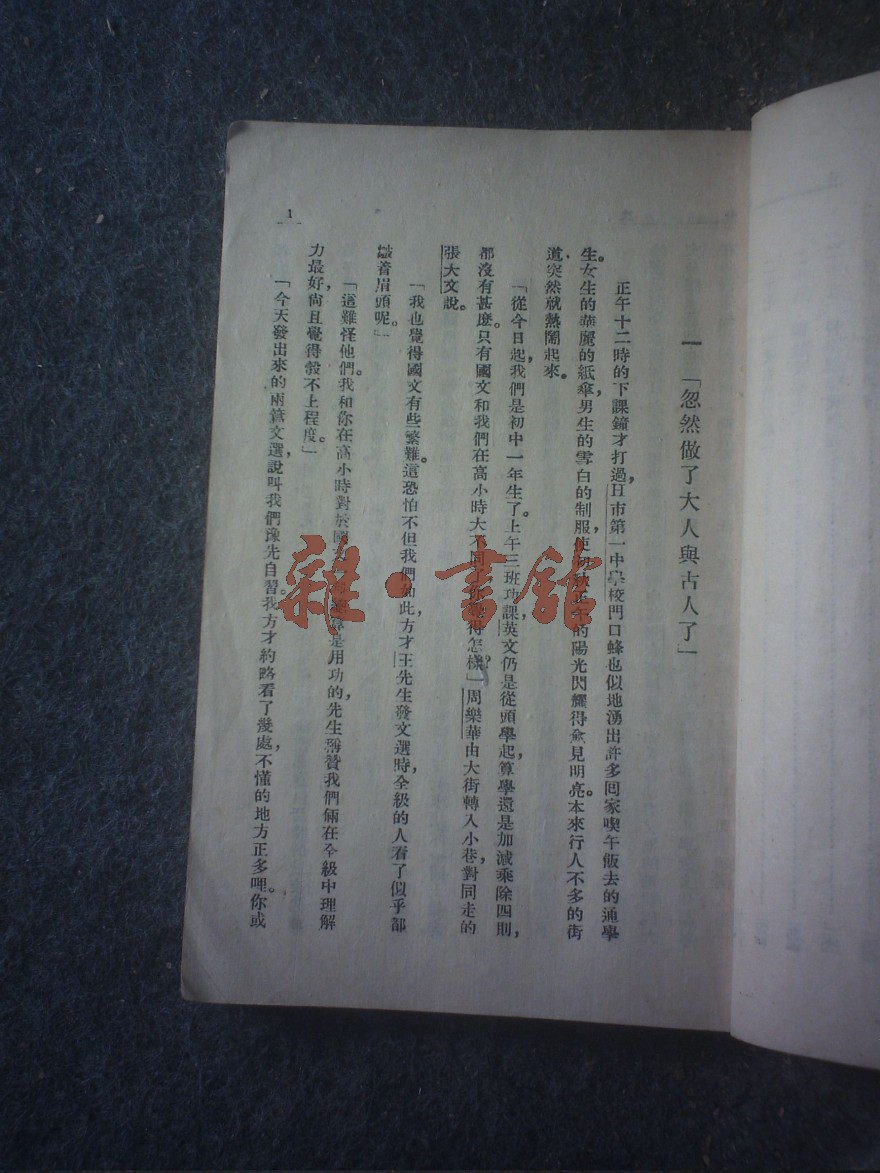 一 「忽然做了大人與古人了」
正午十二時的下課鐘才打過，H市第一中學校門口蜂也似地湧出許多回家喫午飯去的通學
生。女生的華麗的紙傘，男生的雪白的制服，使 正午的陽光閃耀得愈見明亮。本來行人不多的街
道，突然就熱鬧起來。
「從今日起，我們是初中一年生了。上午三班功課，英文仍是從頭學起，算學還是加減乘除四則，
都沒有甚麼。只有國文和我們在高小時大不同了，你覺得怎樣？」周樂華由大街轉入小巷，對同走的
張大文說。
「我也覺得國文有些繁難。這恐怕不但我們如此，方才王先生發文選時，全級的人看了似乎都
皺着眉頭呢。」
「這難怪他們。我和你在高小時對於國文 算是用功的，先生稱贊我們倆在全級中理解
力最好，尚且覺得彀不上程度。」
「今天發出來的兩篇文選，說叫我們豫先自習。我方才約略看了幾處，不懂的地方正多哩。你或
1
雜·書館